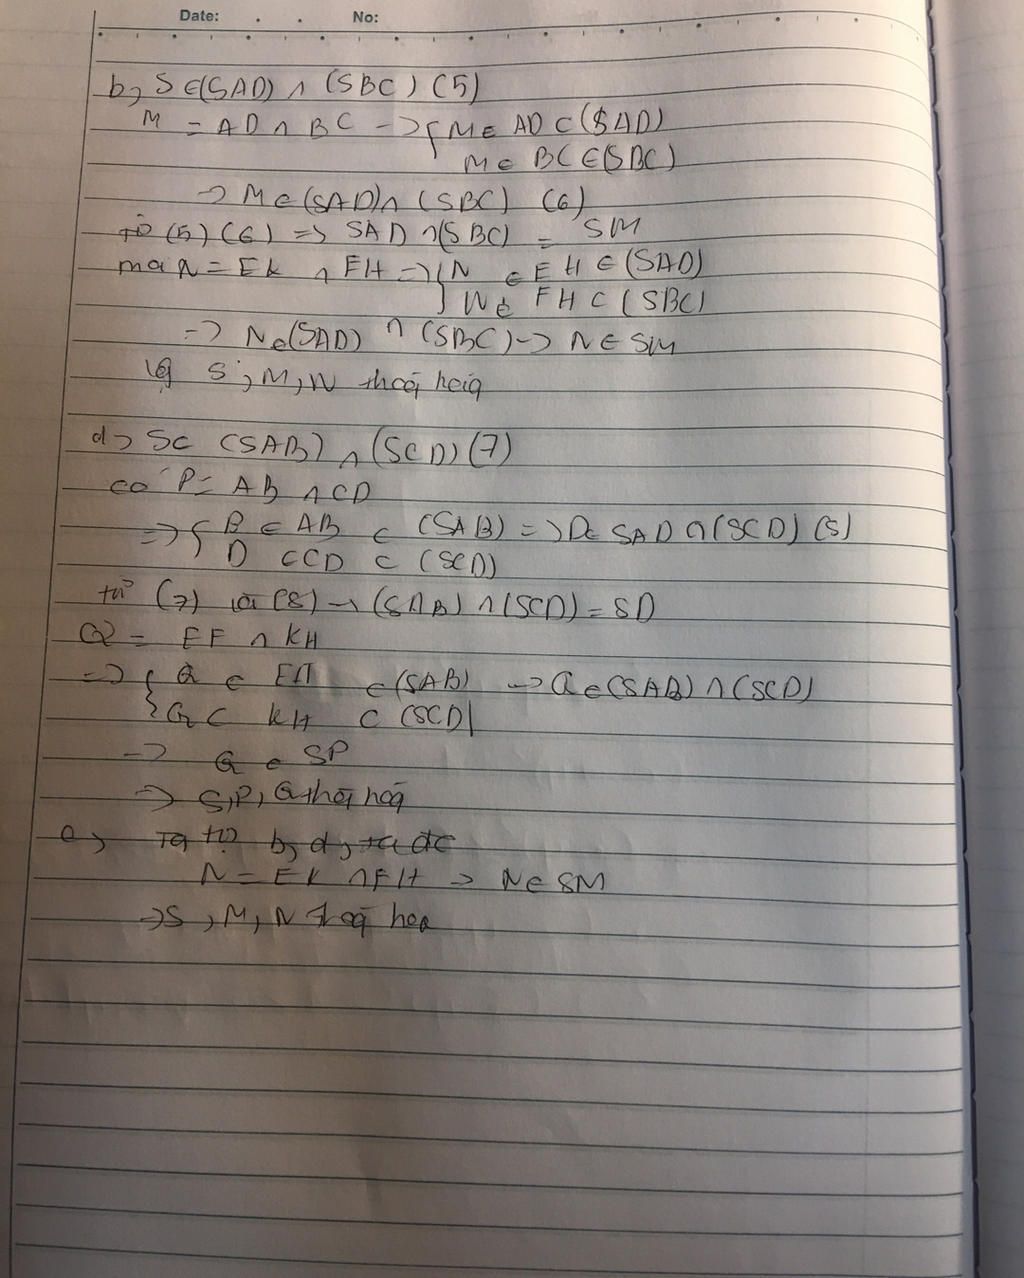 Date: . . No:
b, S ∈ (SAD) ∩ (SBC) (5)
M = AD ∩ BC → { M ∈ AD ⊂ (SAD)
M ∈ BC ∈ (SBC)
→ M ∈ (SAD) ∩ (SBC) (6)
từ (5) (6) => SAD ∩ (SBC) = SM
mà N = EK ∩ FH => { N ∈ EH ∈ (SAD)
N ∈ FH ⊂ (SBC)
→ N ∈ (SAD) ∩ (SBC) → N ∈ SM
S, M, N thẳg hàg
d, S ⊂ (SAB) ∩ (SCD) (7)
có P = AB ∩ CD
=> { P ∈ AB ⊂ (SAB) => P ∈ SAD ∩ (SCD) (8)
P ⊂ CD ⊂ (SCD)
từ (7) và (8) → (SAB) ∩ (SCD) = SP
Q = EF ∩ KH
=> { Q ∈ EF ∈ (SAB) → Q ∈ (SAB) ∩ (SCD)
Q ⊂ KH ⊂ (SCD)
→ Q ∈ SP
→ S, P, Q thẳg hàg
e, Ta từ b, d, ta đc
N = EK ∩ FH → N ∈ SM
→ S, M, N thẳg hàg